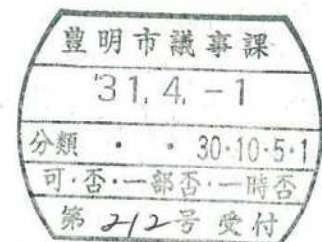 豊明市議事課
'31.4.-1
分類 ・ ・ 30・10・5・1
可・否・一部否・一時否
第212号 受付